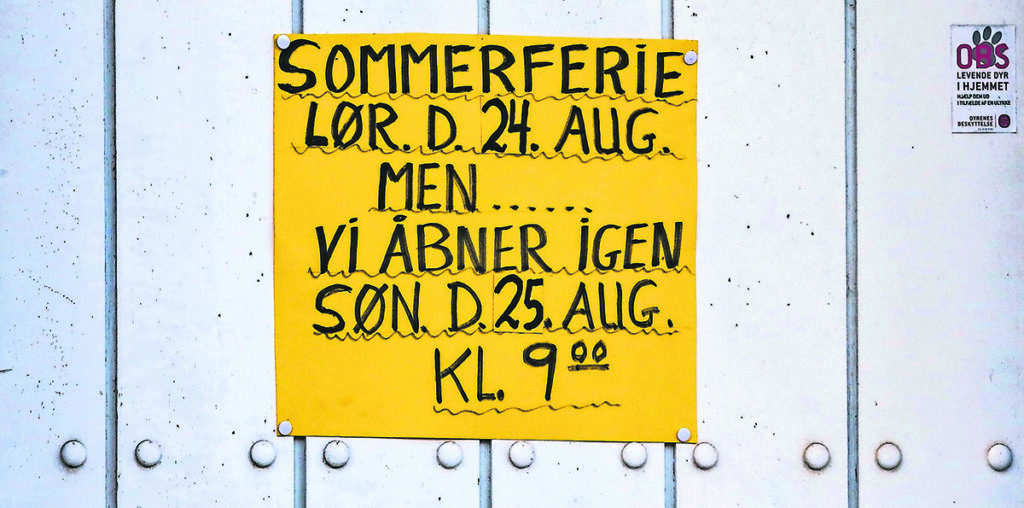 SOMMERFERIE
LØR. D. 24. AUG.
MEN ......
Vi ÅBNER iGEN
SØN. D. 25. AUG.
KL. 9 00
OBS
LEVENDE DYR
I HJEMMET
HJÆLP DEM UD
I TILFÆLDE AF EN ULYKKE
DYRENES
BESKYTTELSE